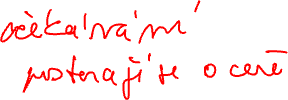 očekávání
postarají se o ceně